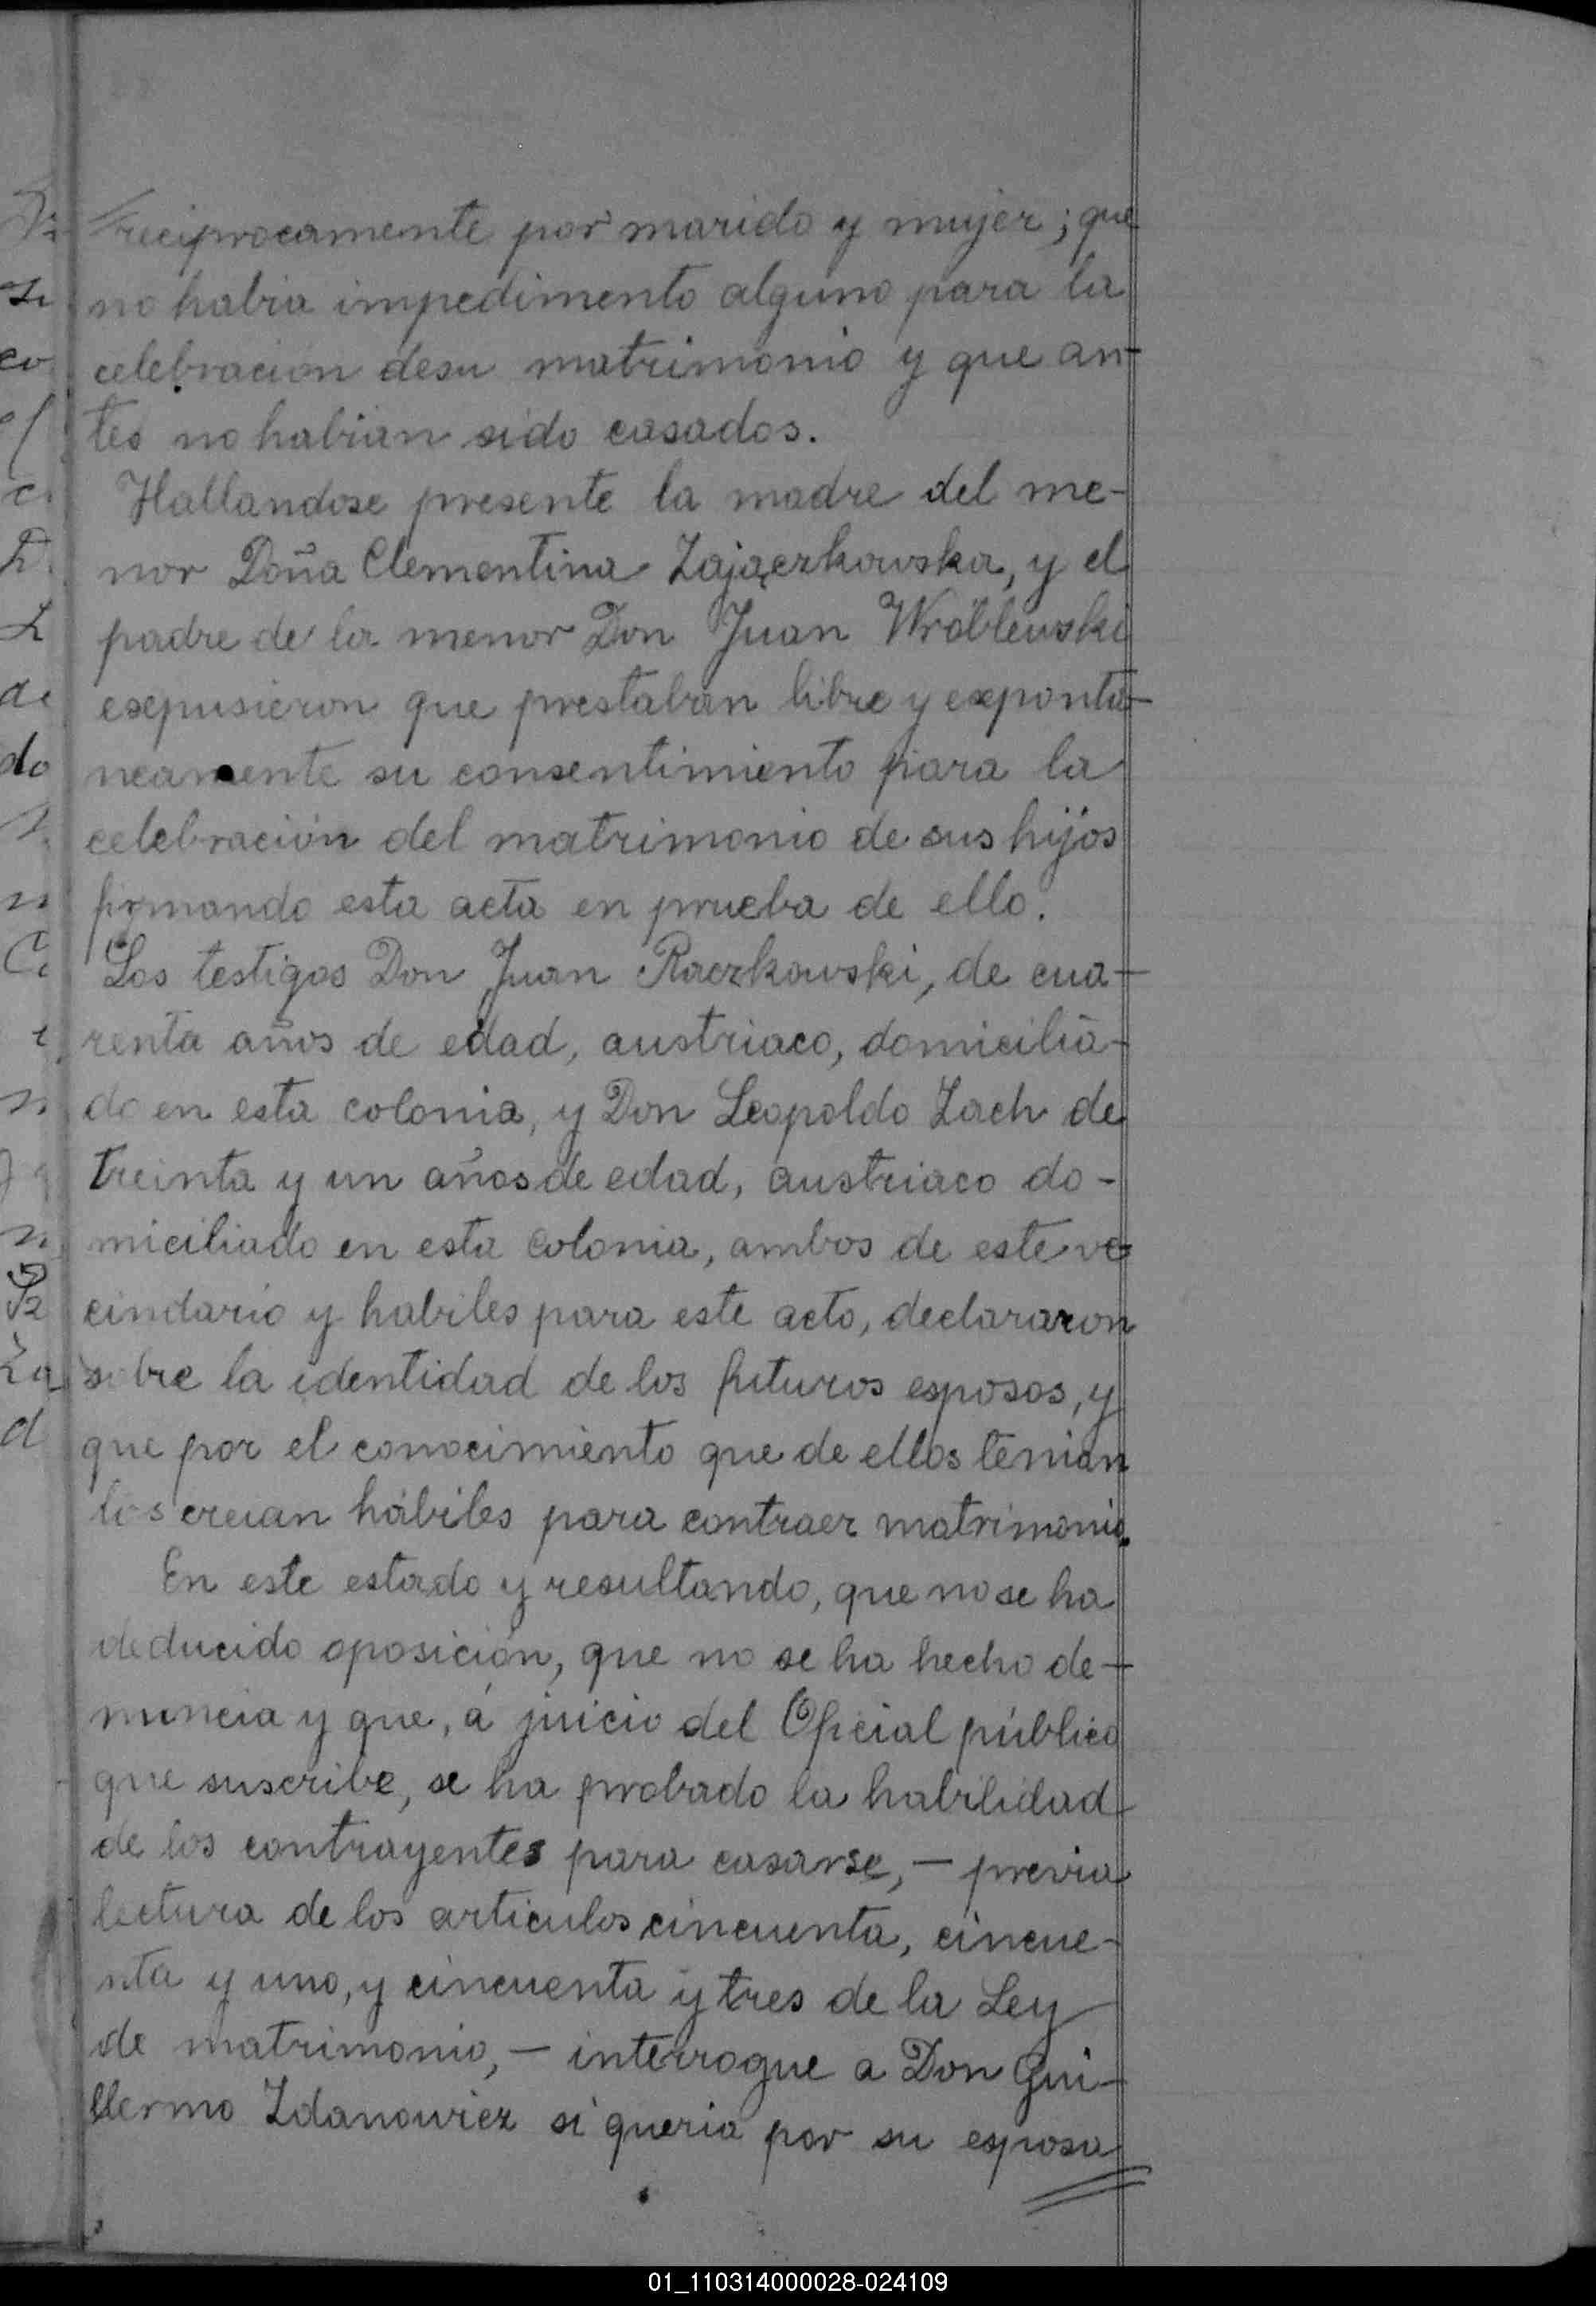 reciprocamente por marido y mujer; que
no habia impedimento alguno para la
celebración desu matrimonio y que an-
tes no habian sido casados.
Hallandose presente la madre del me-
nor Doña Clementina Zajączkowska, y el
padre de la menor Don Juan Wróblewski
esepusieron que prestaban libre y exponta-
neamente su consentimiento para la
celebración del matrimonio de sus hijos
firmando esta acta en prueba de ello.
Los testigos Don Juan Raczkowski, de cua-
renta años de edad, austriaco, domicilia-
do en esta colonia, y Don Leopoldo Zach de
treinta y un años de edad, austriaco do-
miciliado en esta colonia, ambos de este ve
cindario y habiles para este acto, declararon
sobre la identidad de los futuros esposos, y
que por el conocimiento que de ellos tenian
los creian hábiles para contraer matrimonio.
En este estado y resultando, que no se ha
deducido oposición, que no se ha hecho de-
nuncia y que, á juicio del Oficial público
que suscribe, se ha probado la habilidad
de los contrayentes para casarse, — previa
lectura de los articulos cincuenta, cincue-
nta y uno, y cincuenta y tres de la Ley
de matrimonio, — interrogue a Don Gui-
llermo Zdanowicz si queria por su esposa
01_110314000028-024109